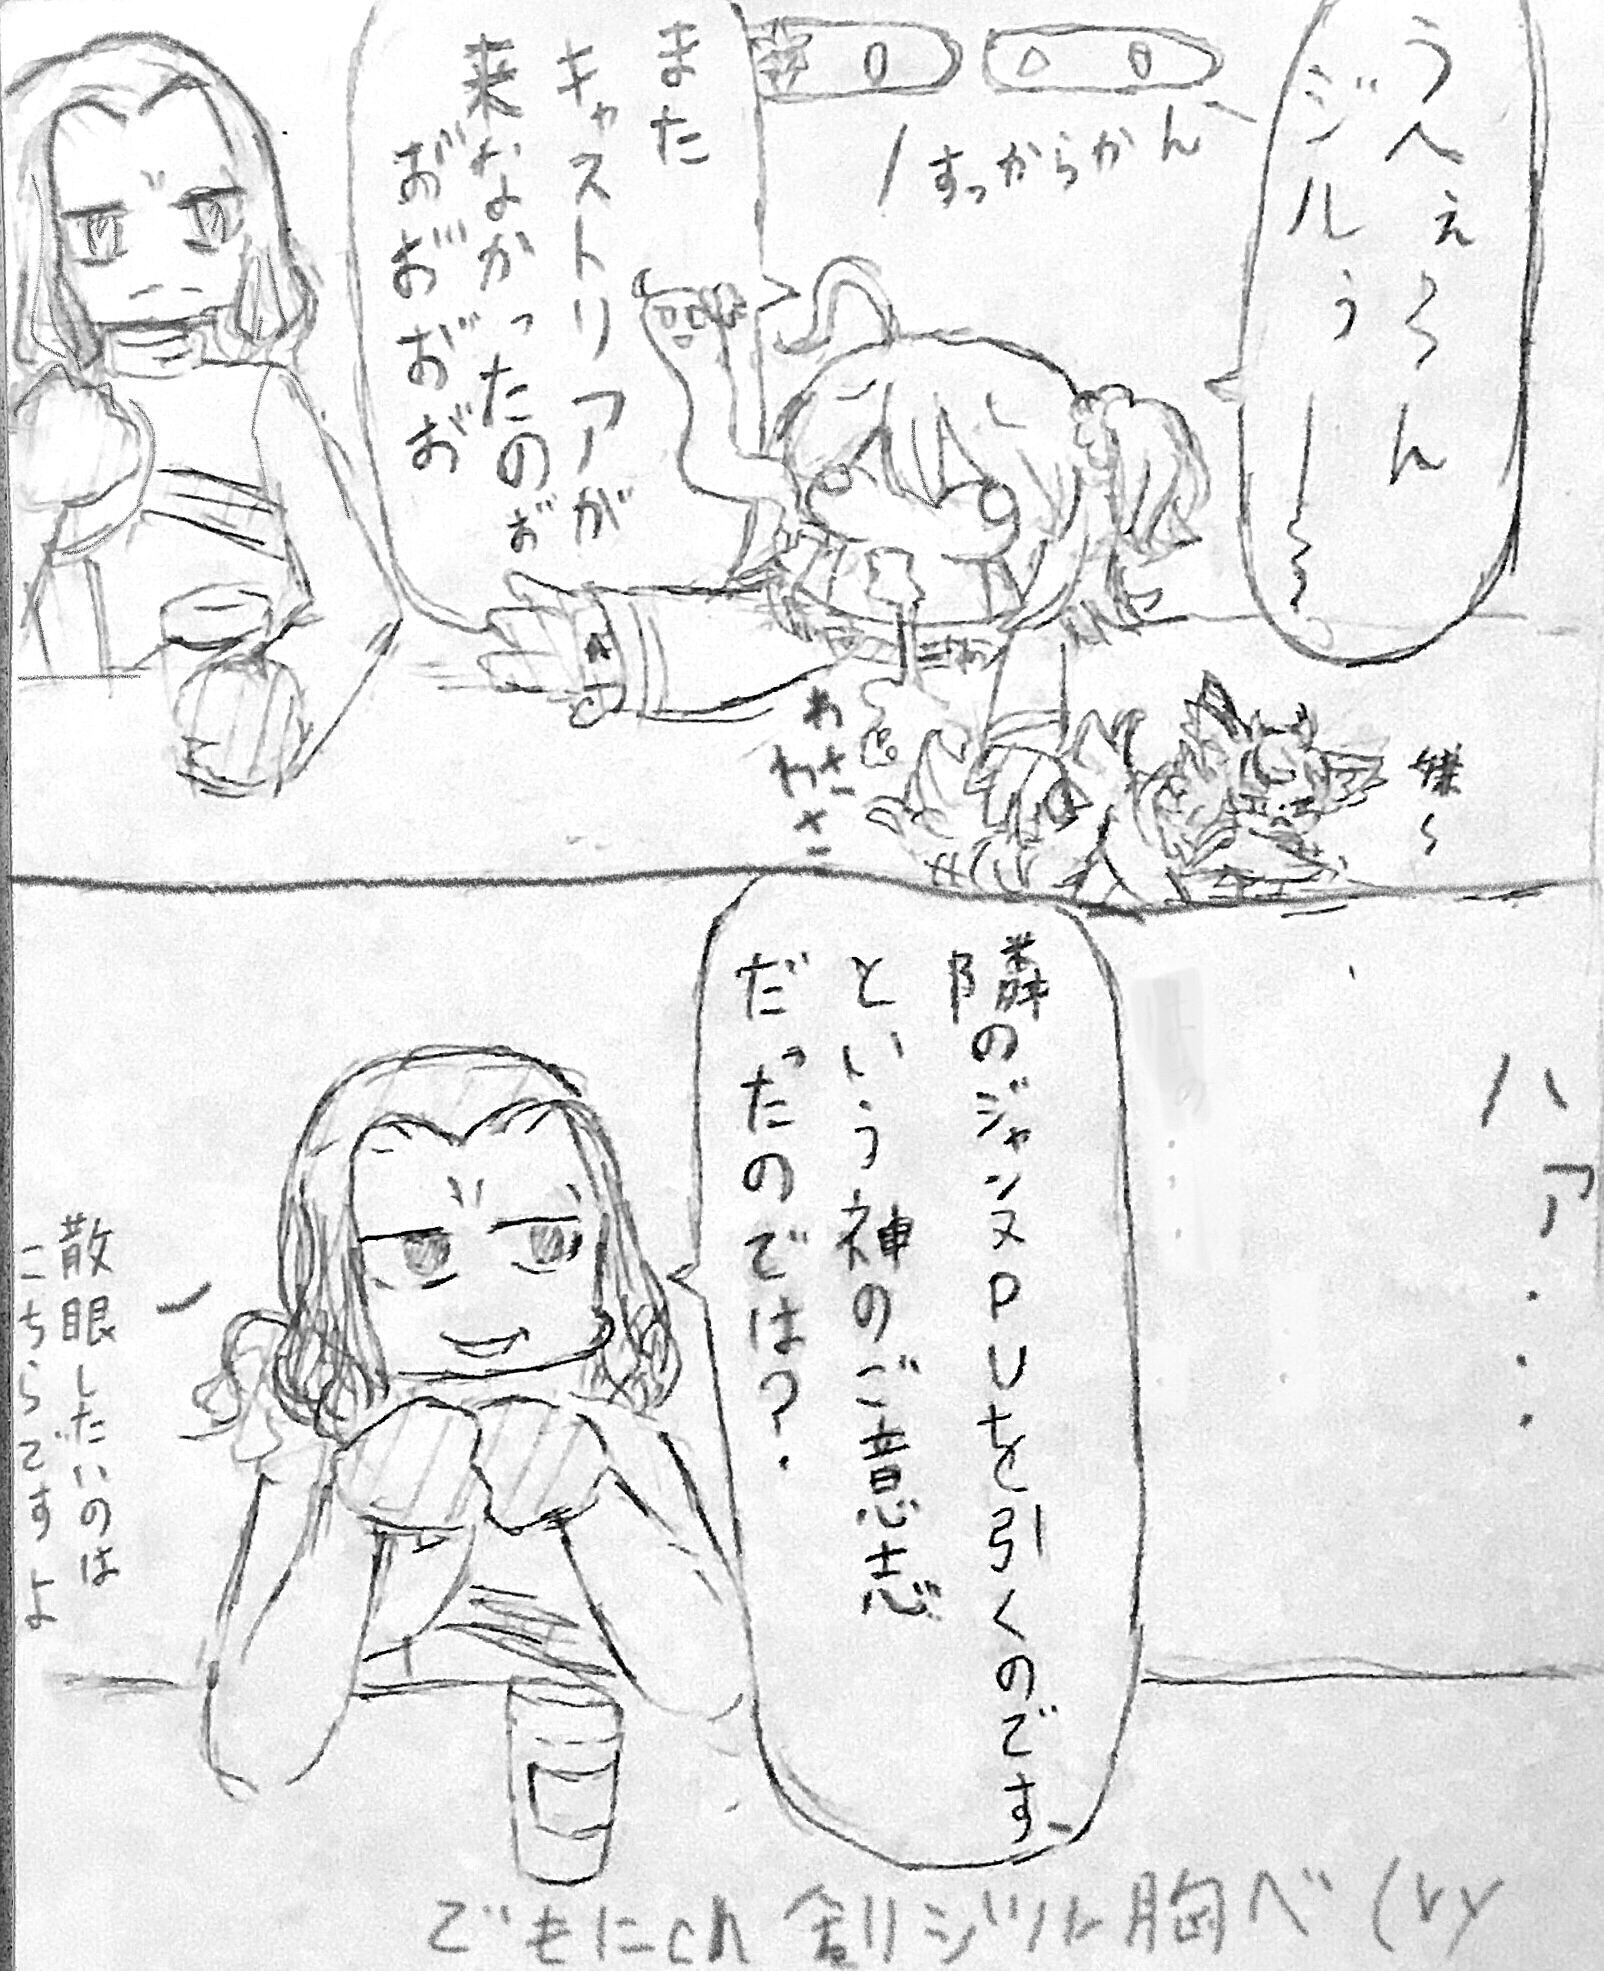 うへぇ~ん
ジルぅ――~~
0
0
\すっからかん
また
キャストリアが
来なかったのぉ
おおおお
わさこ
わさこ
嫌~
ハァ・・・
隣のジャンヌPUを引くのです、
という神のご意志
だったのでは?
散眼したいのは
こちらですよ
でもにch 剣ジル胸ベ(ry